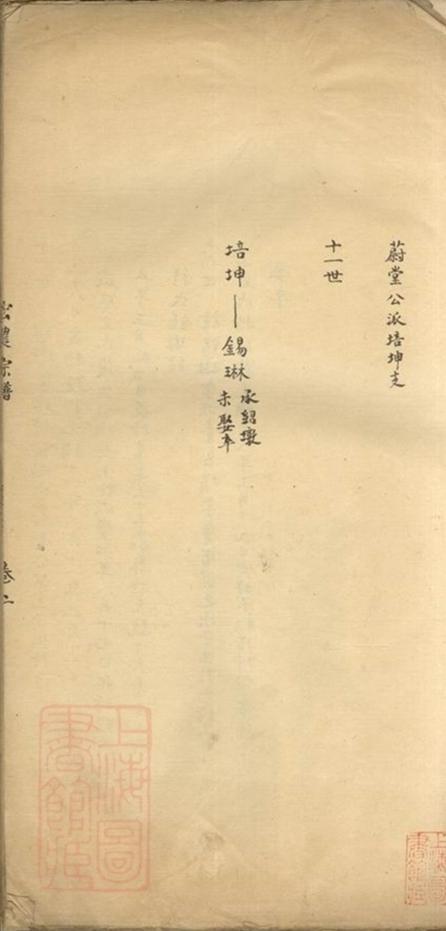 蔚堂公派培坤支
十一世
培坤—錫琳
承紹墩
未娶卒
宗譜
卷二
上海圖
書館藏
上海圖
書館藏